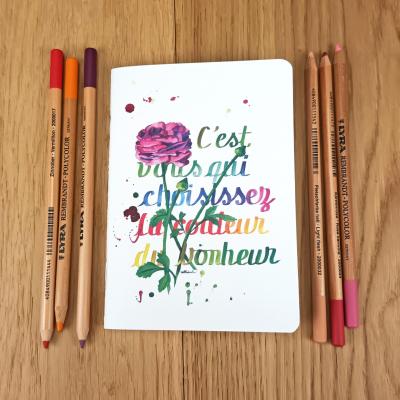 C'est
vous qui
choisissez
la couleur
du bonheur
Zinnober - Vermillion 2000017
LYRA REMBRANDT-POLYCOLOR
LYRA REMBRANDT-POLYCOLOR
LYRA REMBRANDT-POLYCOLOR